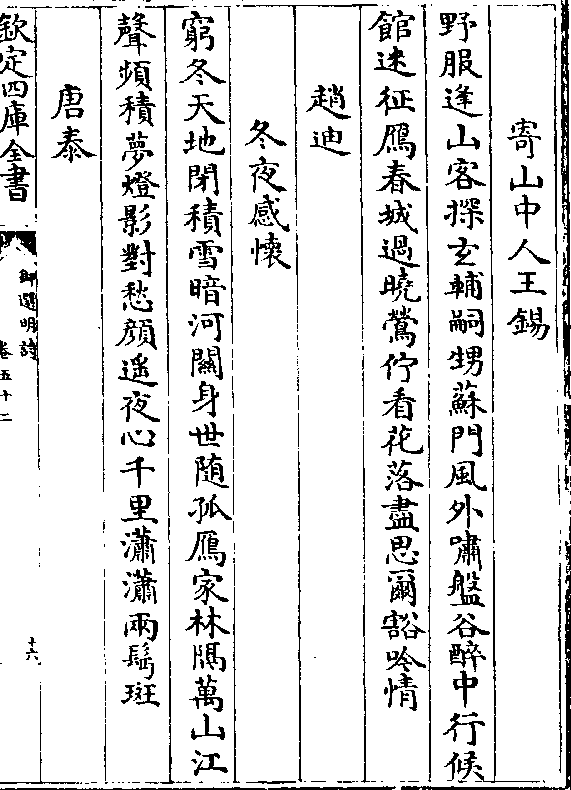 寄山中人王錫
野服逢山客探玄輔嗣甥蘇門風外嘯盤谷醉中行候
館迷征鴈春城過曉鶯佇看花落盡思爾豁吟情
趙迪
冬夜感懷
窮冬天地閉積雪暗河關身世随孤鴈家林隔萬山江
聲頻積夢燈影對愁顔遥夜心千里瀟瀟兩鬂斑
唐泰
欽定四庫全書
御選明詩
卷五十二
十六